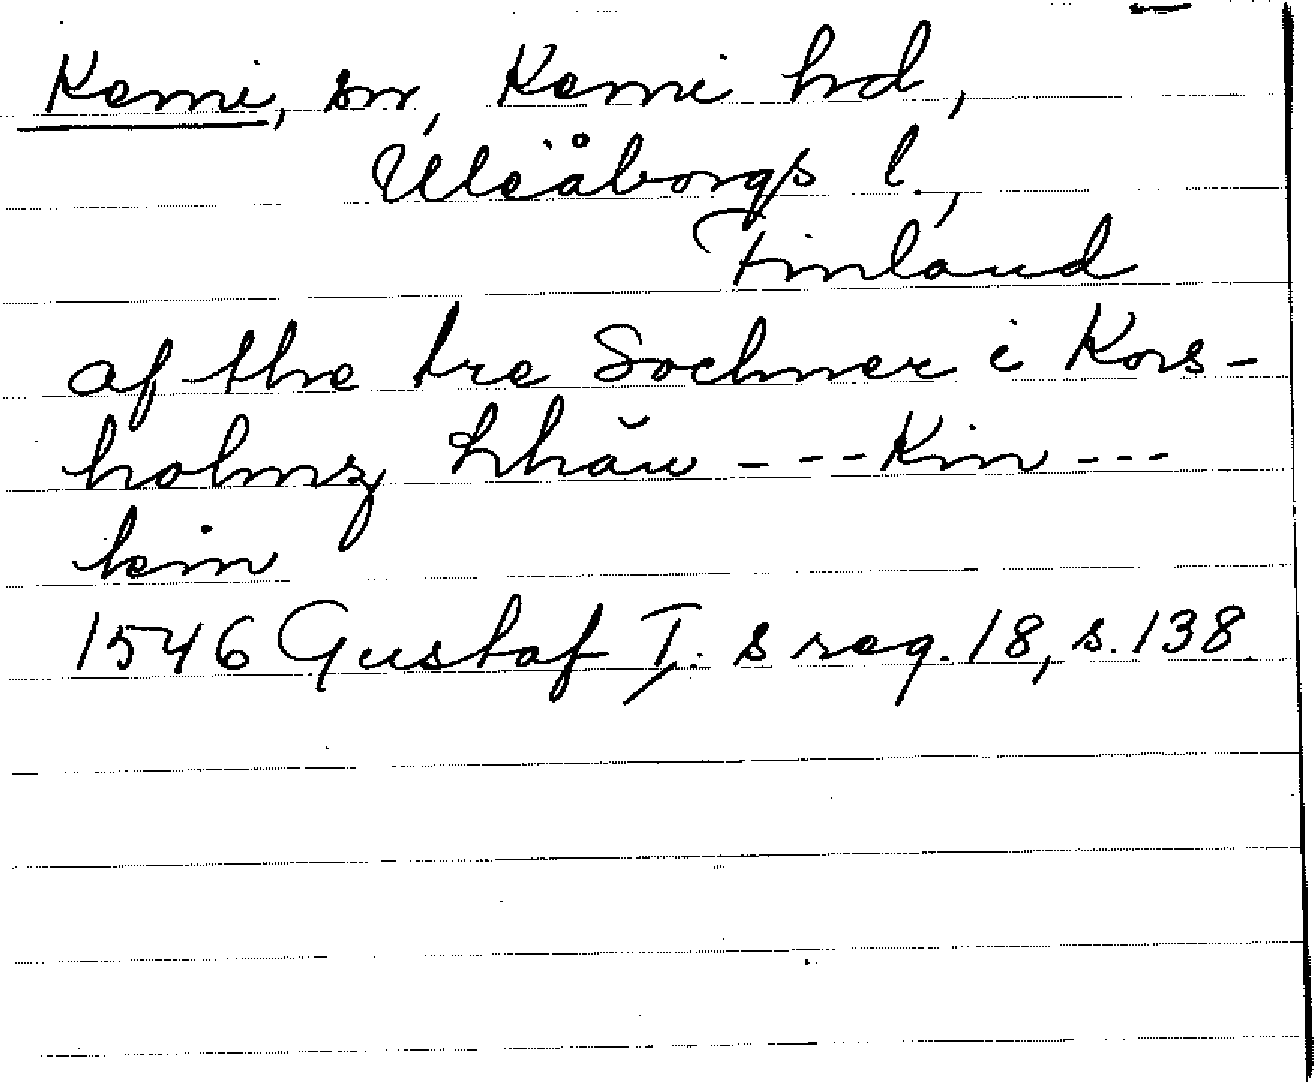 Kemi, sn, Kemi hd,
Uleåborgs l.,
Finland
af the tre Sochner i Kors-
holmz
---Kim---
kim
1546 Gustaf I. s reg. 18, s. 138